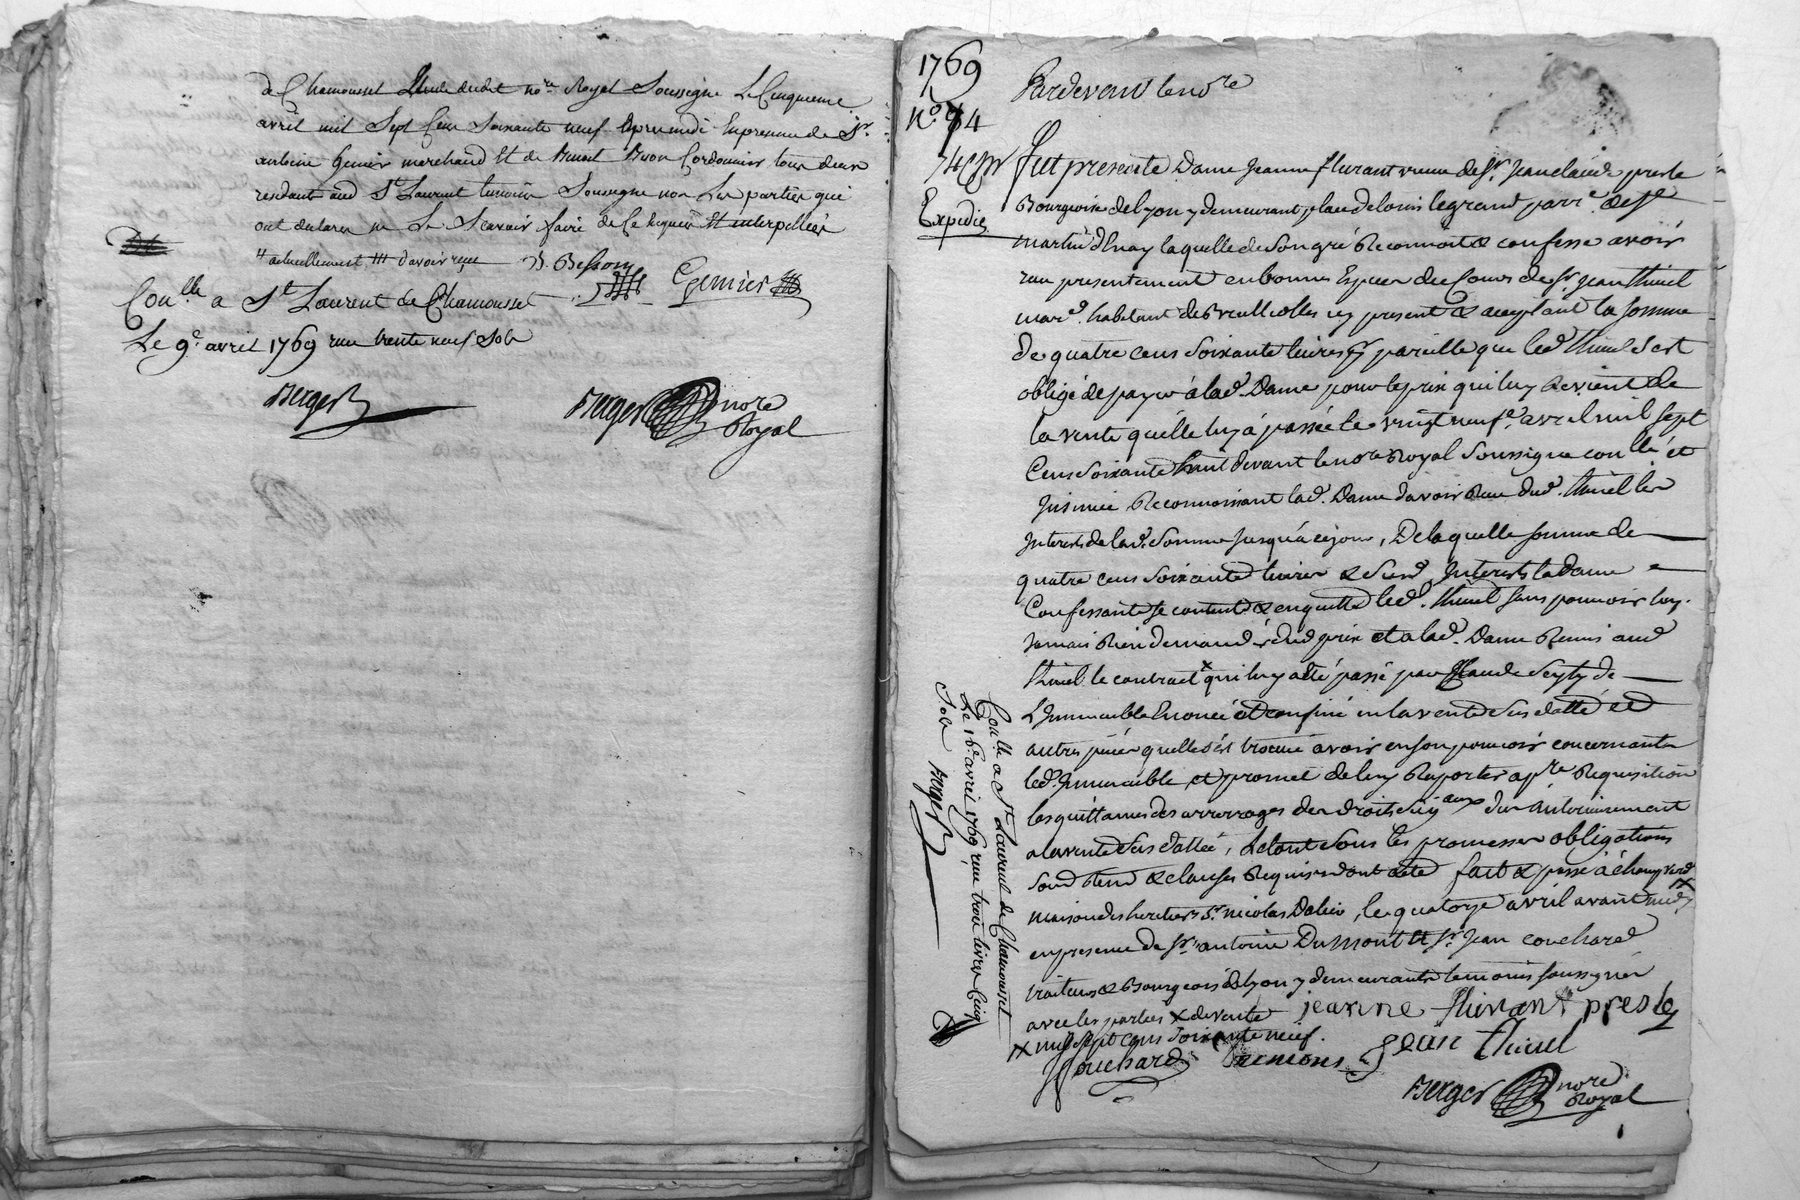 de Chamousset Etude dudit no.re Royal Soussigné Le Cinquieme
avril mil Sept Cens Soixante neuf apres midi En presence de Sr.
antoine Genier marchand Et de Benoit Buon Cordonnier tous deux
residants aud St Laurent temoins Soussigné non Les parties qui
ont declaré ne Le Scavoir faire de Ce Requis Et interpellées
# actuellement d'avoir reçu B. Besson Genier
Con.lle a St Laurent de Chamousset
Le 9.e avril 1769 reçu trente neuf Sols
Berger
Berger no.re
Royal
1769
No. 74
Pardevant le no.re
Expedié
fut presente Dame Jeanne flurant veuve de Sr. Jean claude presle
Bourgeoise de lyon y demeurant place de louis le grand parr.e de St
martin d'Enay laquelle de Son gré Reconnoit & confesse avoir
reçu presentement en bonnes Especes du Cours de Sr. Jean thivel
marc.d habitant de Brullioles icy present & acceptant la Somme
de quatre cens Soixante livres pareille que led. thivel S'est
obligé de payer à lad. Dame pour le prix qui luy Revient de
la vente qu'elle luy à passée le vingt neuf.e avril mil Sept
Cens Soixante huit devant le no.re Royal Soussigné con.llé et
Insinué Reconnoissant lad. Dame d'avoir Reçu dud. thivel les
Interests de lad. Somme Jusqu'à ce jour, De laquelle Somme de
quatre cens Soixante livres & Susd. Interests la Dame
Confessante Se contente & en quitte led. thivel Sans pouvoir luy
Jamais Rien demander dud. prix et a lad. Dame Remis aud.
thivel le contract x qui luy a été passé par Claude Seyty de
L'Immeuble Enoncé et confiné en la vente Sus datté et
autres pièces qu'elle s'est trouvé avoir en son pouvoir concernants
led. Immeuble et promet de luy Rapporter a p.re Requisition
les quittances des arrerrages des droits Seig.aux dus anterieurement
a la vente Sus dattée, Le tout Sous les promesses obligations
Soumd Rend & clauses Requises dont acte fait & passé à
maison des heritiers Sr. nicolas Dalin, le quatorze avril avant midy x
en presence de Sr. antoine Dumont Et Sr. Jean couchard
traiteurs & Bourgeois de lyon y demeurants temoins Soussignés
avec les parties x de vente jeanne flurant presle
x mil Sept cens Soixante neuf.
Couchard Dumont Jean thivel
Berger no.re
Royal
Con.lle a St Laurent de Chamousset
Le 16.e avril 1769 reçu trois livres Cinq
Sols Berger